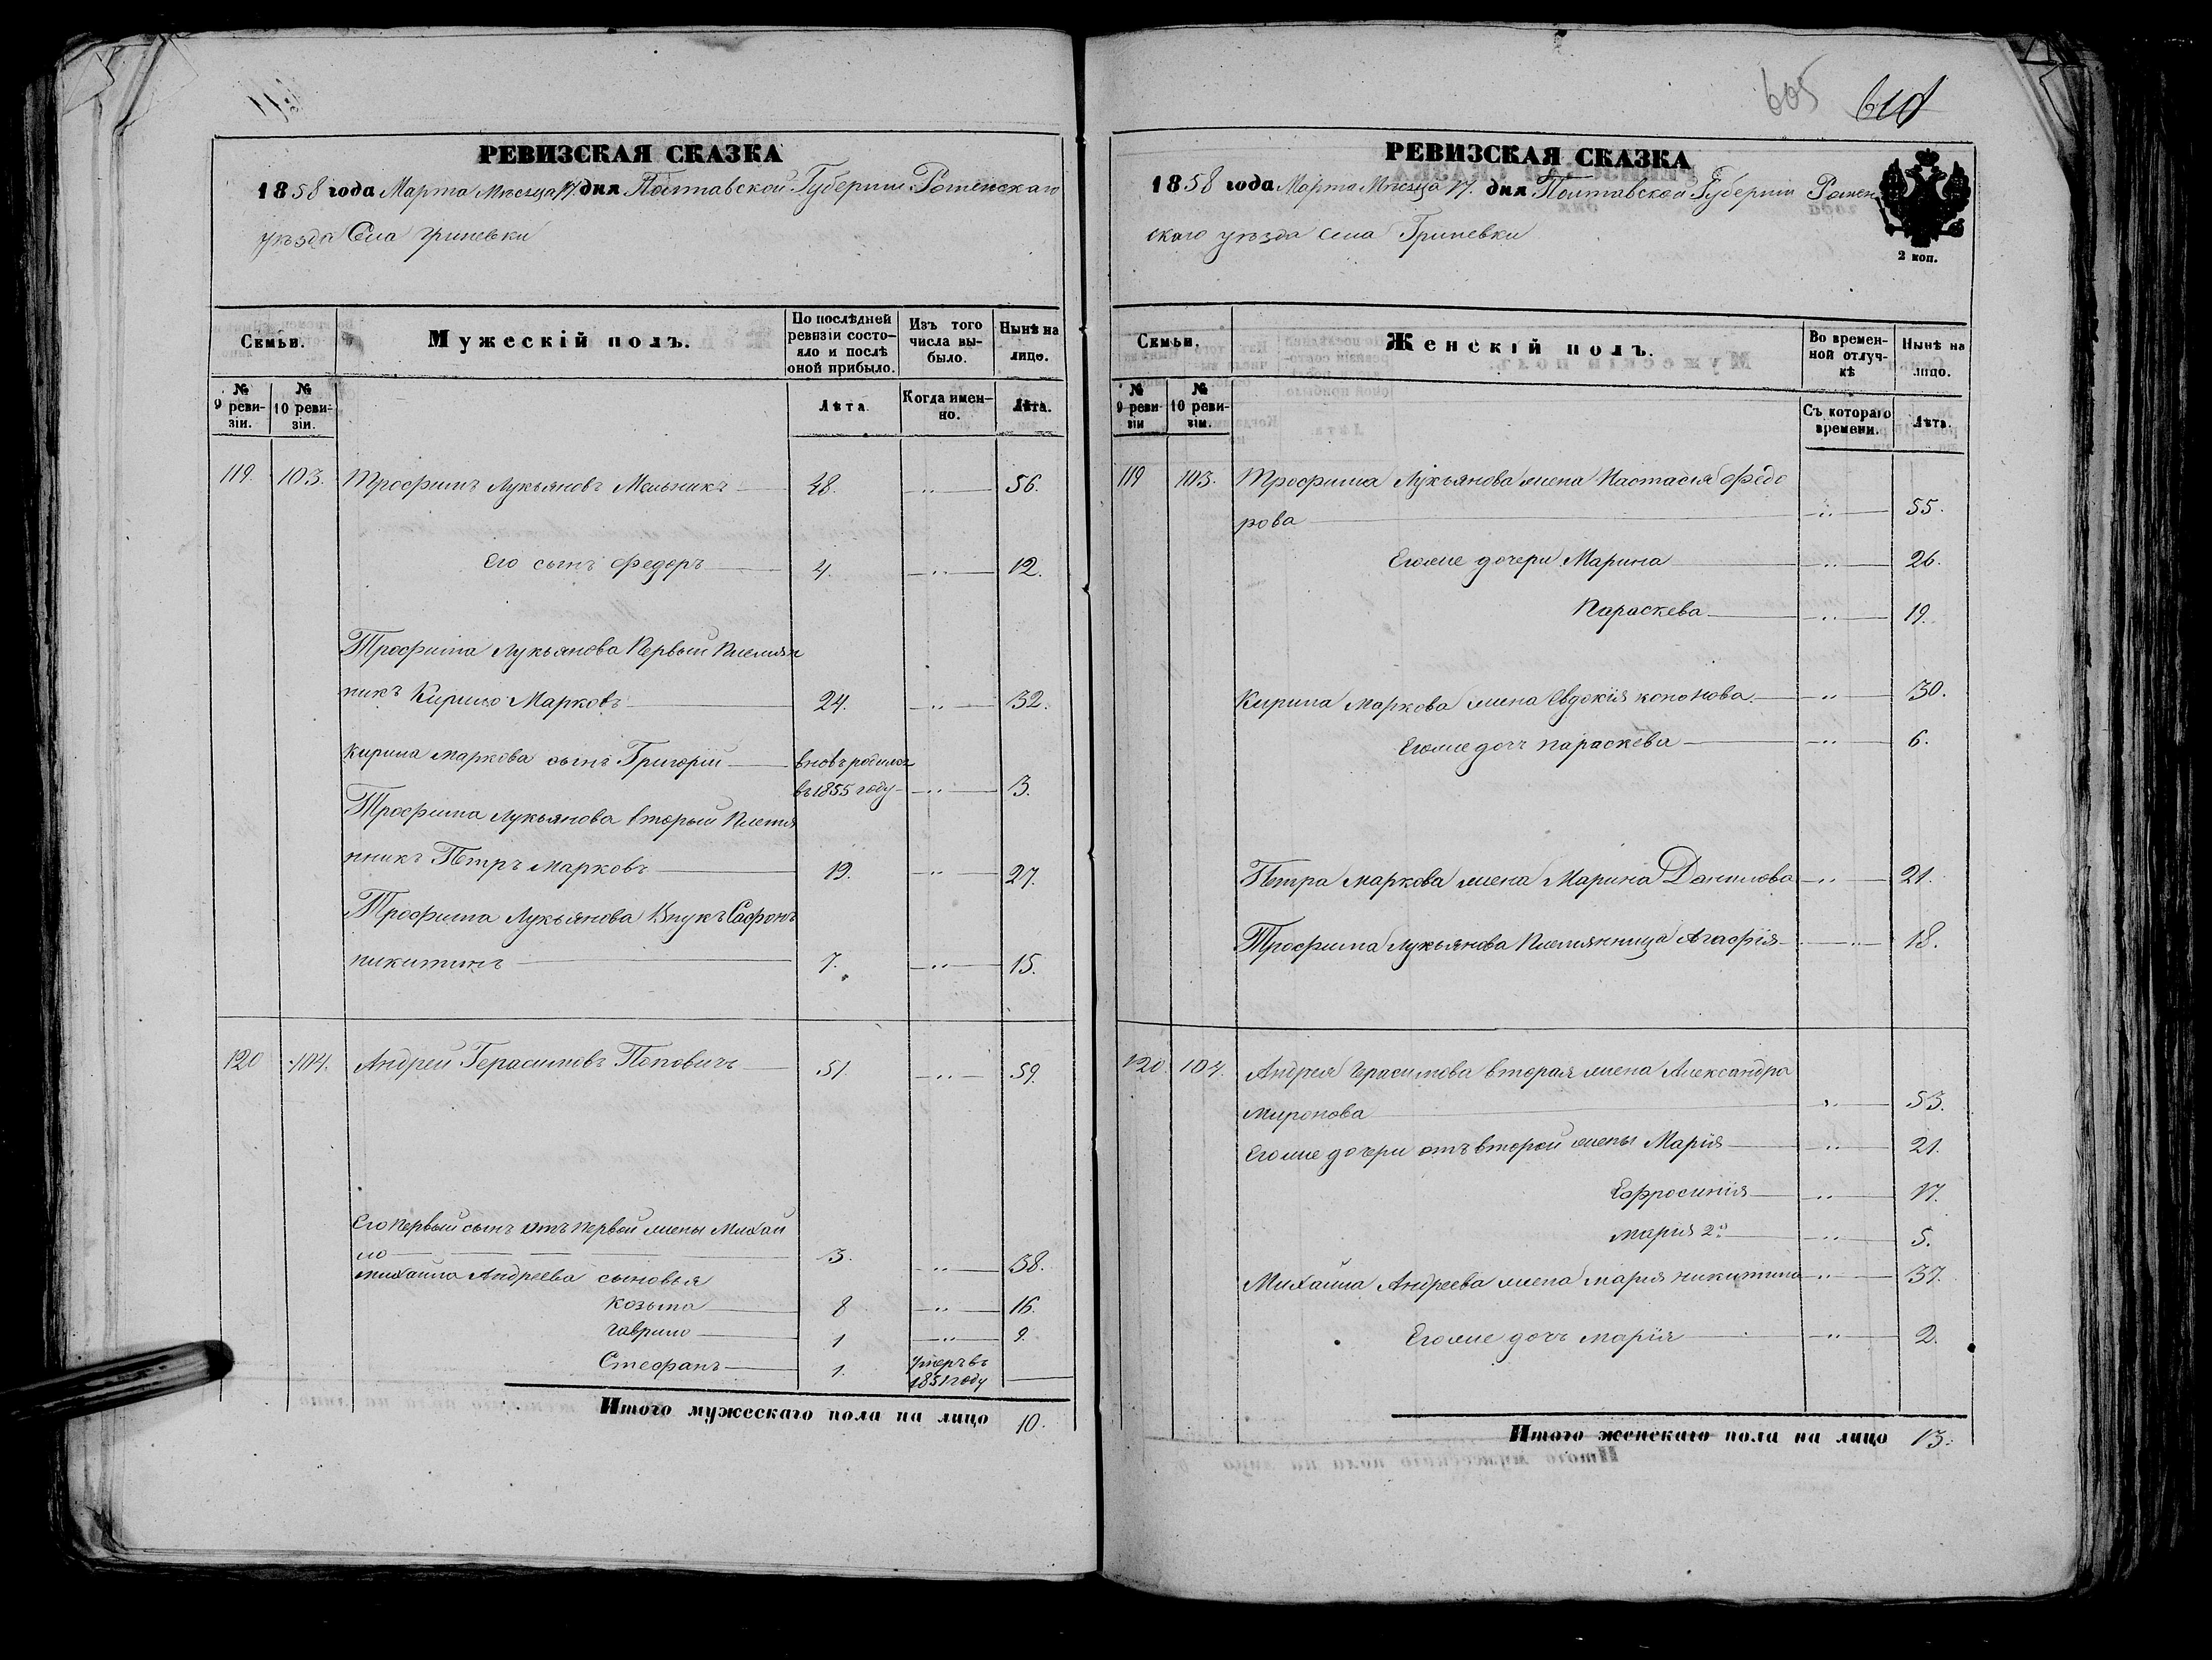 РЕВИЗСКАЯ СКАЗКА
1858 года Марта Мѣсяца 17 дня Полтавской Губерніи Роменскаго
уѣзда Села Гриневки
Семьи.
Мужескій полъ.
По послѣдней ревизіи состояло и послѣ оной прибыло.
Изъ того числа выбыло.
Нынѣ на лицо.
№ 9 ревизіи.
№ 10 ревизіи.
Лѣта.
Когда именно.
Лѣта.
119. 103. Трофимъ Лукьяновъ Мельникъ 48. 56.
Его сынъ Федоръ 4. 12.
Трофима Лукьянова Первый Племян
никъ Кирило Марковъ 24. 32.
Кирила Маркова сынъ Григорій вновь родился
въ 1855 году 3.
Трофима Лукьянова второй Племя
нникъ Петръ Марковъ 19. 27.
Трофима Лукьянова Внукъ Сафонъ
никитинъ 7. 15.
120 104. Андрей Герасимовъ Поповичъ 51 59.
Его первый сынъ отъ первой жены Михай
ло 3. 38.
Михайла Андреева сыновья
Козьма 8 16.
Гаврило 1 9.
Стефанъ 1. умеръ въ
1851 году
Итого мужескаго пола на лицо 10.
605
РЕВИЗСКАЯ СКАЗКА
1858 года Марта Мѣсяца 17. дня Полтавской Губерніи Ромен
скаго уѣзда села Гриневки
2 коп.
Семьи.
Женскій полъ.
Во временной отлучкѣ
Нынѣ на лицо.
№ 9 ревизіи
№ 10 ревизіи.
Съ котораго времени.
Лѣта.
119 103. Трофима Лукьянова жена Настасія Федо
рова 55.
Егоже дочери Марина 26.
Параскева 19.
Кирила Маркова жена Евдокія Кононова. 30.
Егоже дочь Параскева 6.
Петра Маркова жена Марина Данилова 21.
Трофима Лукьянова Племянница Агафія 18.
120 104. Андрея Герасимова вторая жена Александра
Миронова 53.
Егоже дочери отъ второй жены Марія 21.
Ефросинія 17.
Марія 2я 5.
Михайла Андреева жена Марія никитина 37.
Егоже дочь Марія 2.
Итого женскаго пола на лицо 13.